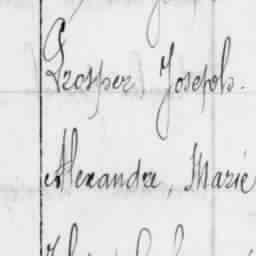 Prosper, Joseph.
Alexandre, Marie